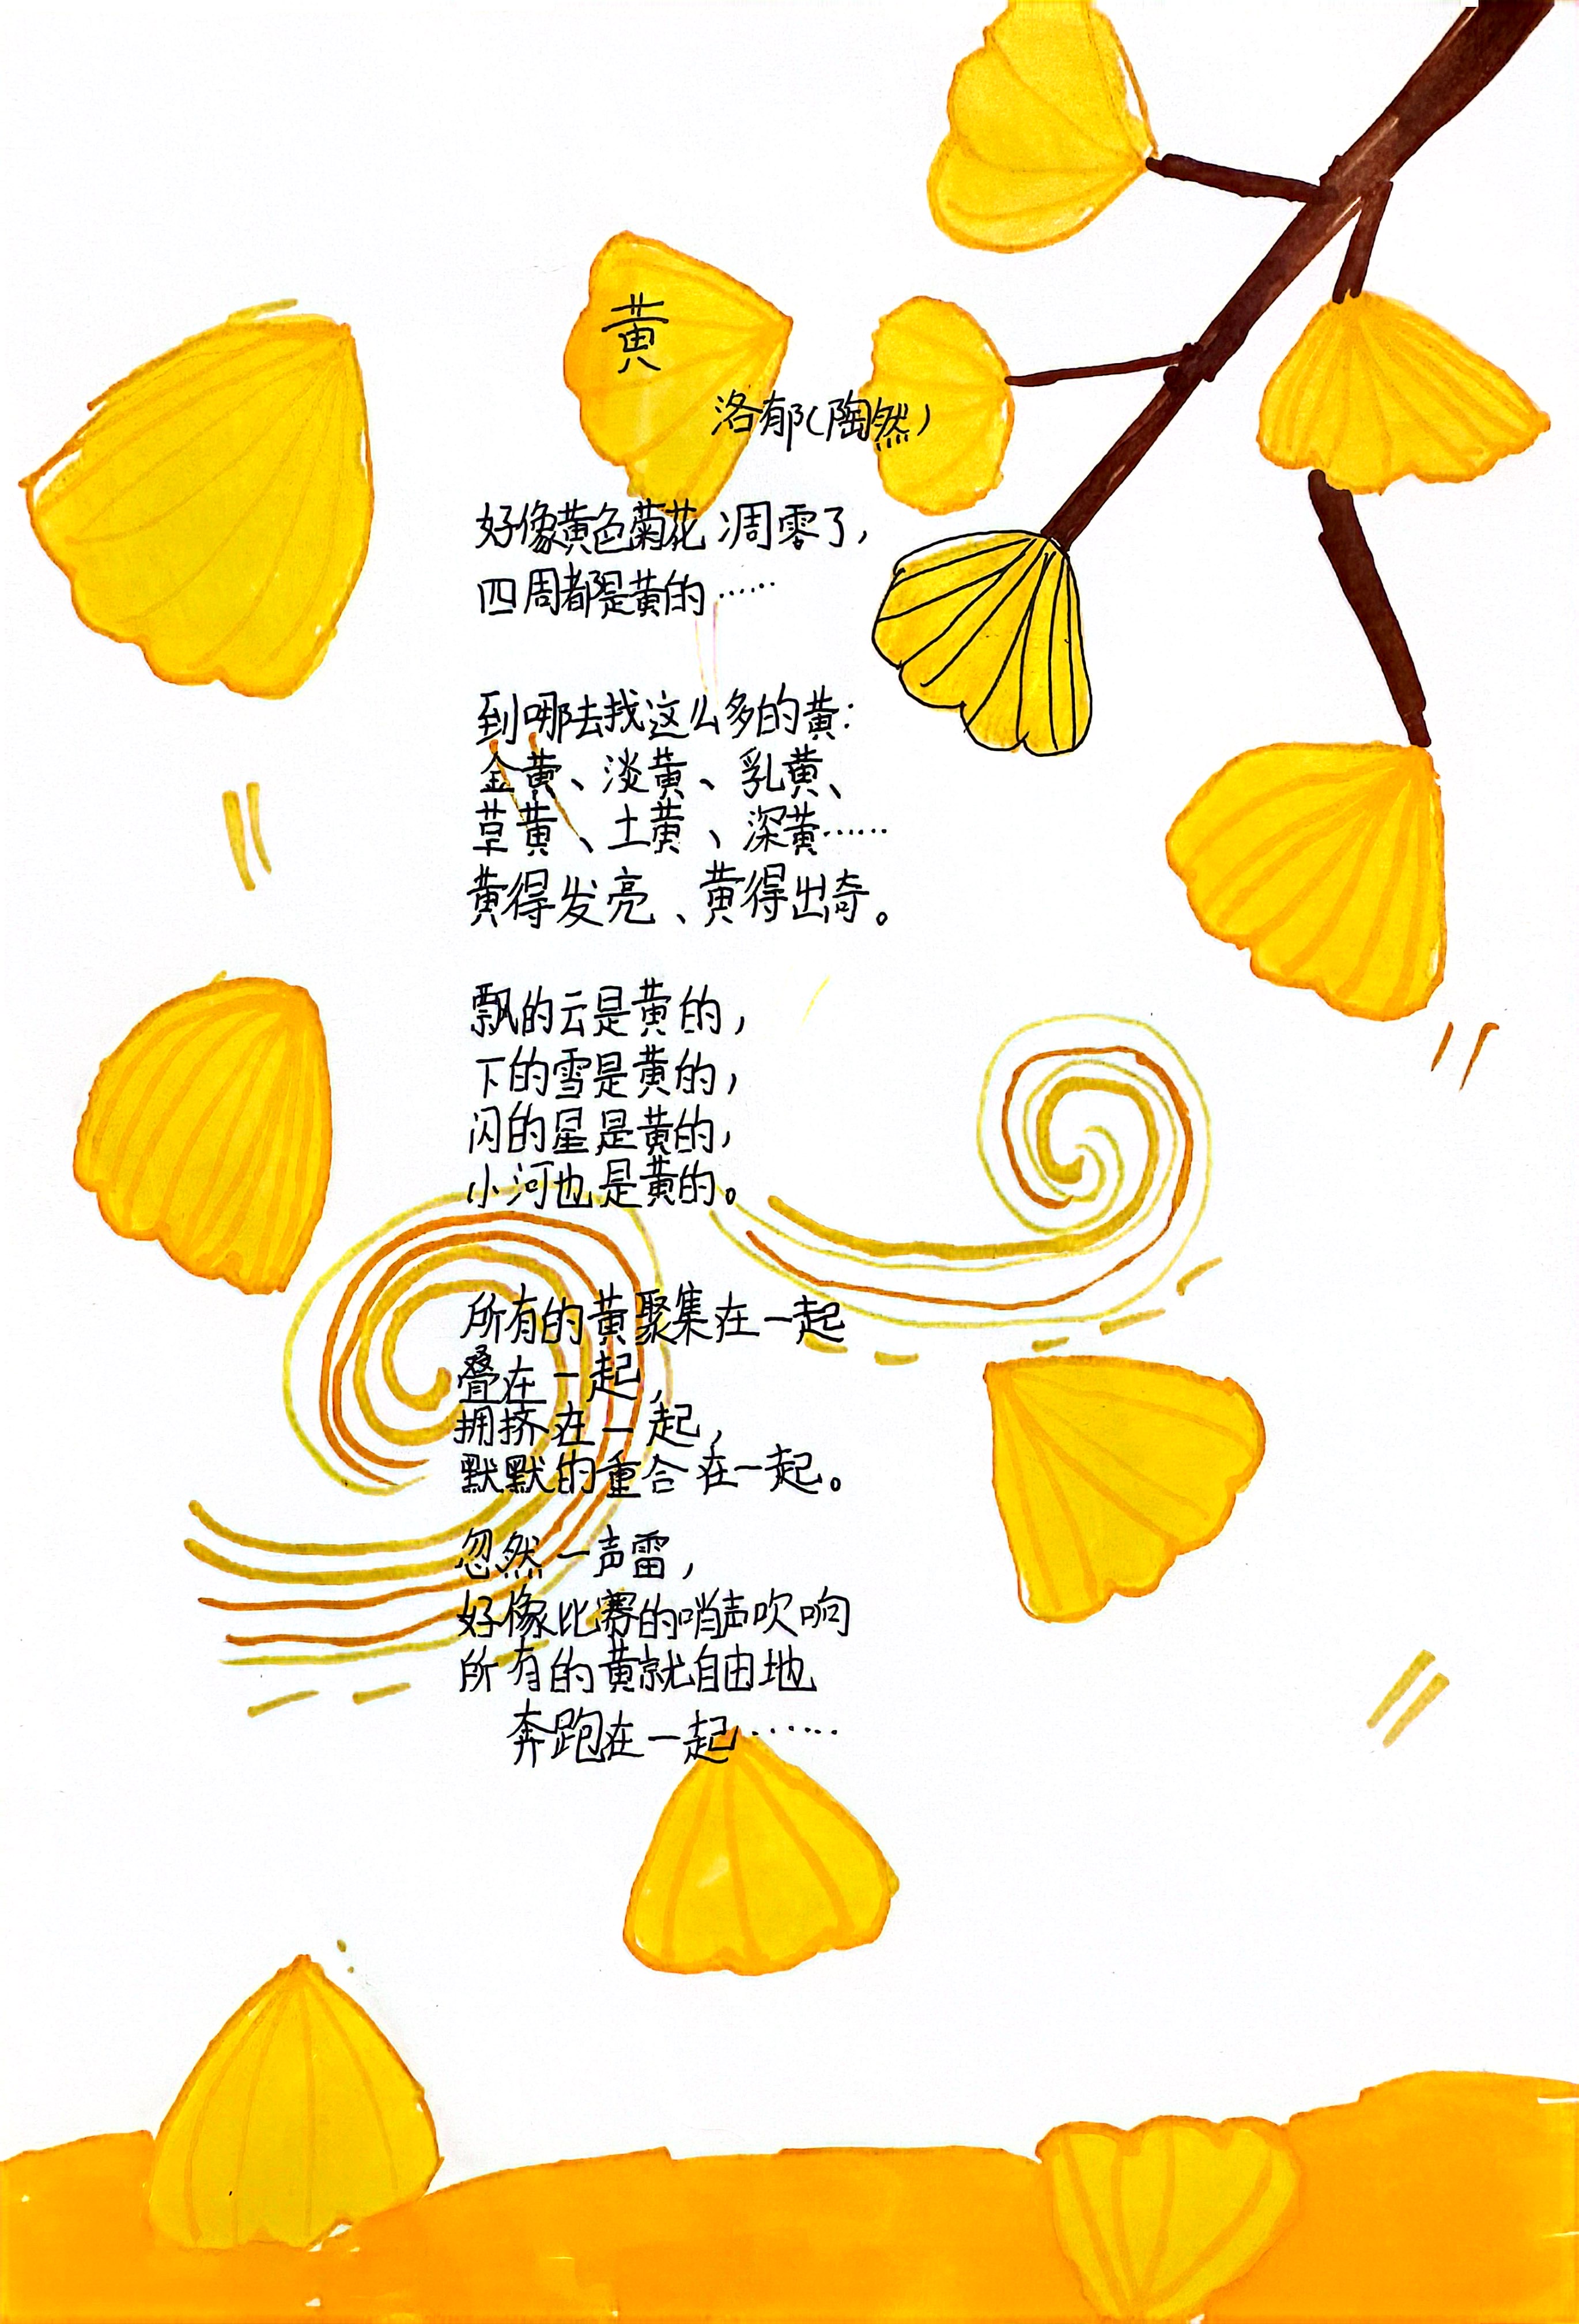 黄
洛郁(陶然)
好像黄色菊花凋零了,
四周都是黄的……
到哪去找这么多的黄:
金黄、淡黄、乳黄、
草黄、土黄、深黄……
黄得发亮、黄得出奇。
飘的云是黄的,
下的雪是黄的,
闪的星是黄的,
小河也是黄的。
所有的黄聚集在一起
叠在一起,
拥挤在一起,
默默的重合在一起。
忽然一声雷,
好像比赛的哨声吹响
所有的黄就自由地
奔跑在一起……